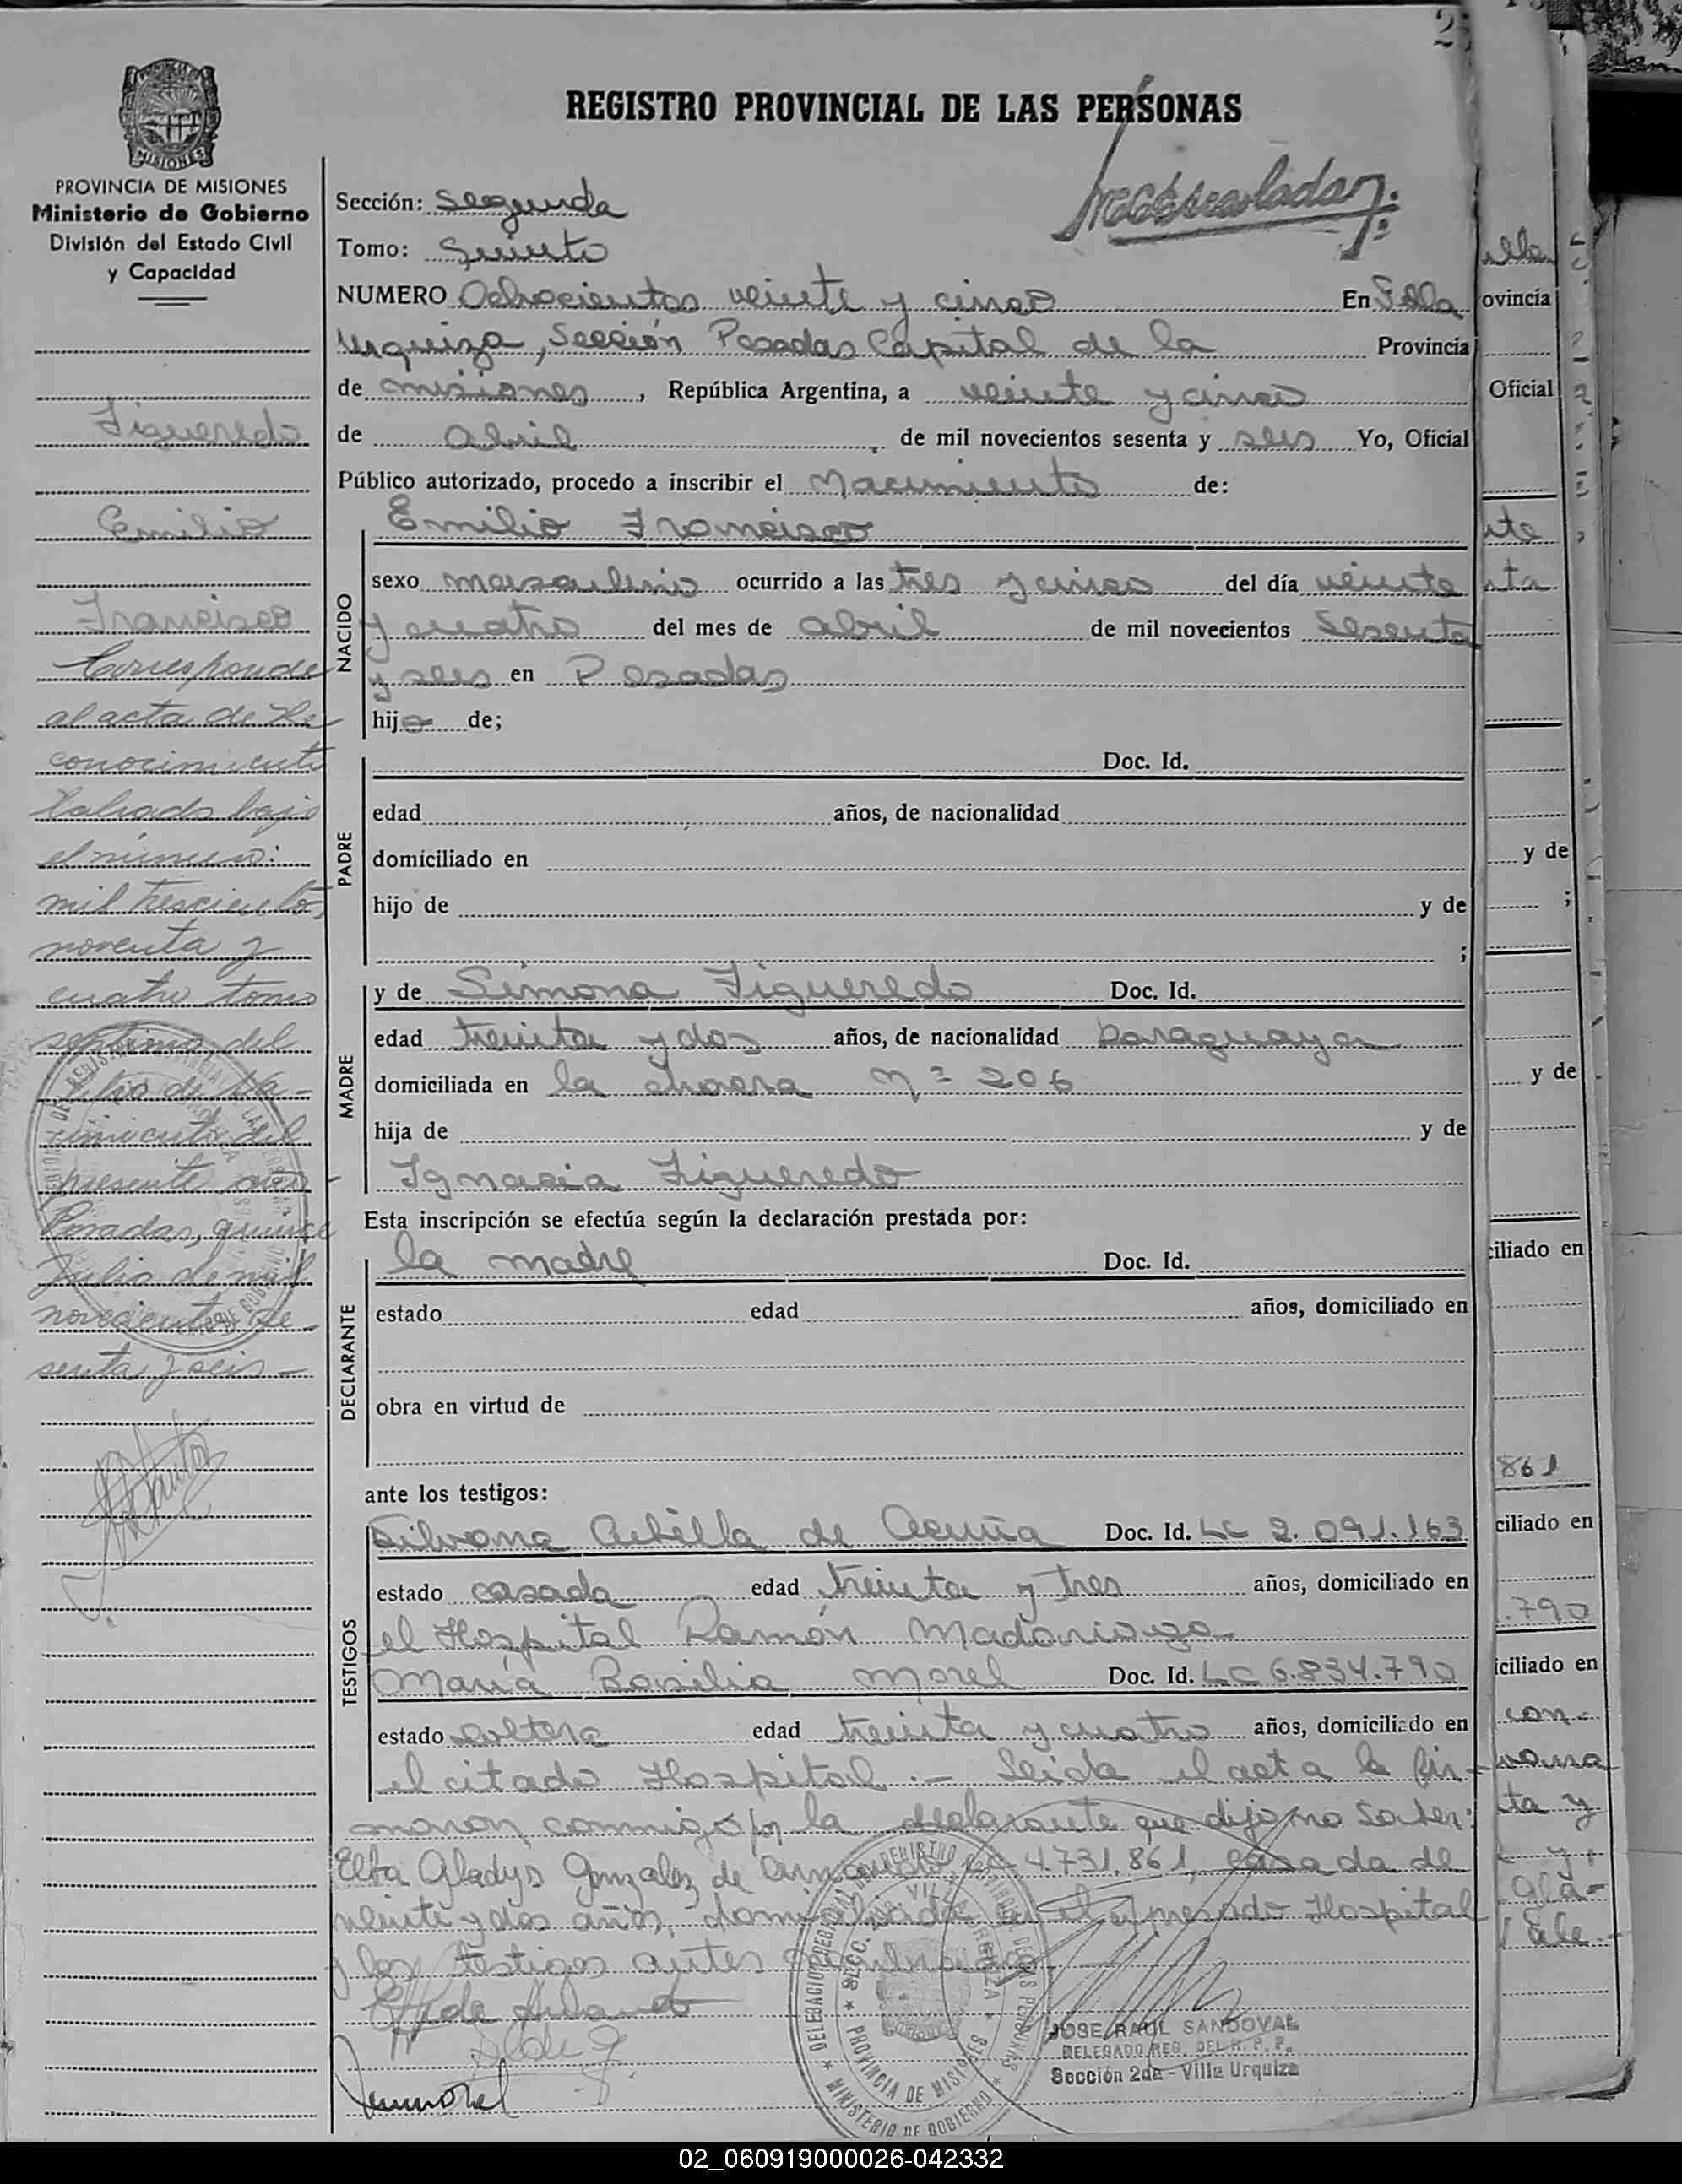 REGISTRO PROVINCIAL DE LAS PERSONAS
MISIONES
PROVINCIA DE MISIONES
Ministerio de Gobierno
División del Estado Civil
y Capacidad
Figueredo
Emilio
Francisco
Corresponde
al acta de Re
conocimiento
labrado bajo
el número:
mil trescientos
noventa y
cuatro tomo
septimo, del
libro de Na-
cimientos del
presente año
Posadas, quince
Julio de mil
novecientos se
senta y seis -
Sección: Segunda
Tomo: Quinto
NUMERO Ochocientos veinte y cinco En Villa
Urquiza, Sección Posadas Capital de la Provincia
de misiones, República Argentina, a veinte y cinco
de Abril de mil novecientos sesenta y seis Yo, Oficial
Público autorizado, procedo a inscribir el Nacimiento de:
NACIDO
Emilio Francisco
sexo masculino ocurrido a las tres y cinco del día veinte
y cuatro del mes de abril de mil novecientos Sesenta
y seis en Posadas
hijo de;
PADRE
Doc. Id.
edad años, de nacionalidad
domiciliado en
hijo de y de
;
MADRE
y de Simona Figueredo Doc. Id.
edad treinta y dos años, de nacionalidad paraguaya
domiciliada en la chacra Nº 206
hija de y de
Ignacia Figueredo
Esta inscripción se efectúa según la declaración prestada por:
DECLARANTE
la madre Doc. Id.
estado edad años, domiciliado en
obra en virtud de
ante los testigos:
TESTIGOS
Silvana Cubilla de Acuña Doc. Id. LC 2.091.163
estado casada edad treinta y tres años, domiciliado en
el Hospital Ramón Madariaga
María Basilia Morel Doc. Id. LC 6.834.790
estado soltera edad treinta y cuatro años, domiciliado en
el citado Hospital.- Leida el acta la fir-
maron conmigo por la declarante que dijo no saber:
Elba Gladys Gonzalez de LC 4731.861, casada de
veinte y dos años, domiciliada en el expresado Hospital
y los testigos antes
JOSE RAUL SANDOVAL
DELEGADO REG. DEL R. P. P.
Sección 2da - Villa Urquiza
DELEGACION REGISTRO PROVINCIAL DE LAS PERSONAS
SECC. VILLA URQUIZA
PROVINCIA DE MISIONES
MINISTERIO DE GOBIERNO
ovincia
Oficial
y de
;
y de
ciliado en
861
ciliado en
.790
iciliado en
con-
ta y
02_060919000026-042332